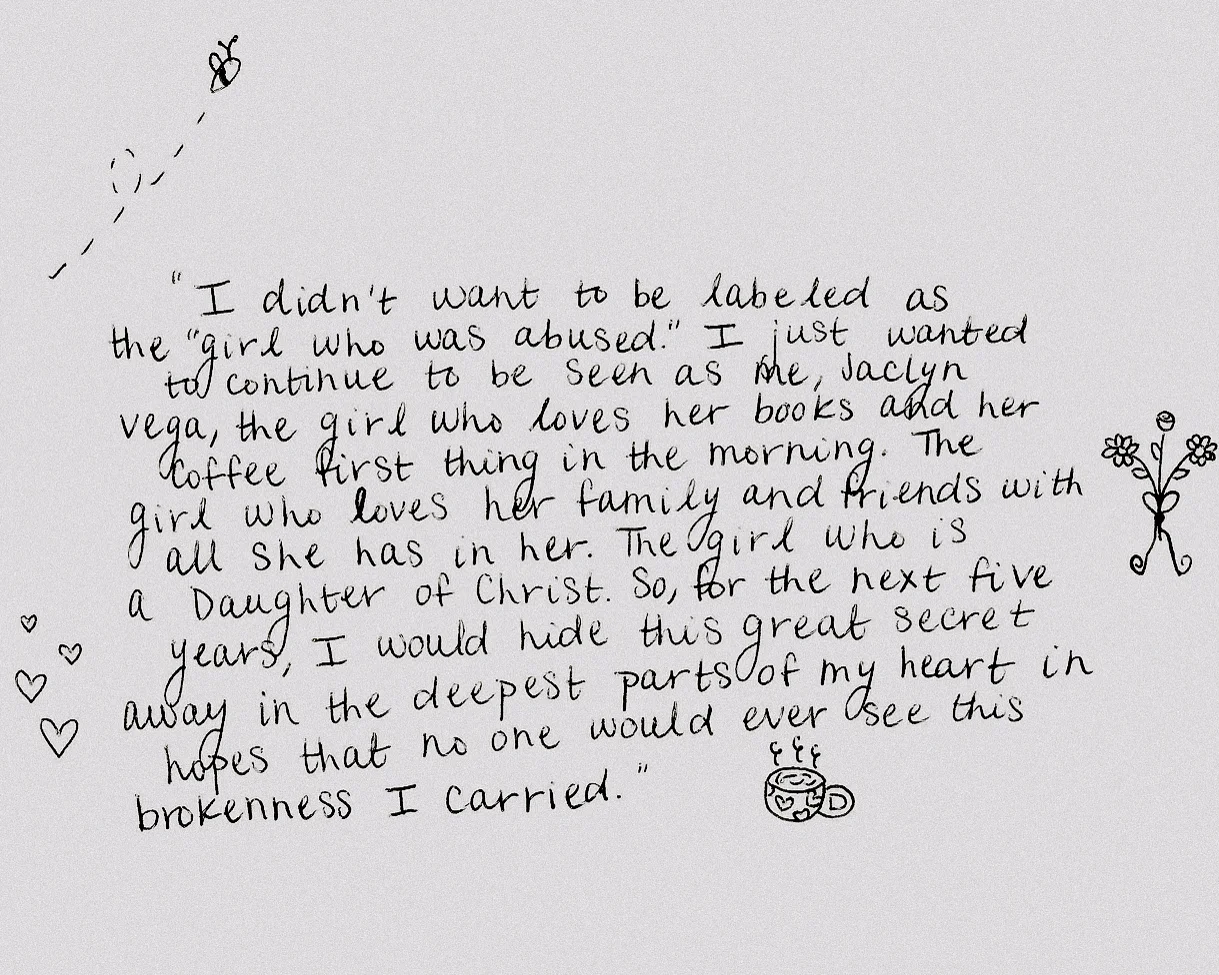 "I didn't want to be labeled as
the "girl who was abused." I just wanted
to continue to be seen as me, Jaclyn
Vega, the girl who loves her books and her
coffee first thing in the morning. The
girl who loves her family and friends with
all she has in her. The girl who is
a Daughter of Christ. So, for the next five
years, I would hide this great secret
away in the deepest parts of my heart in
hopes that no one would ever see this
brokenness I carried."